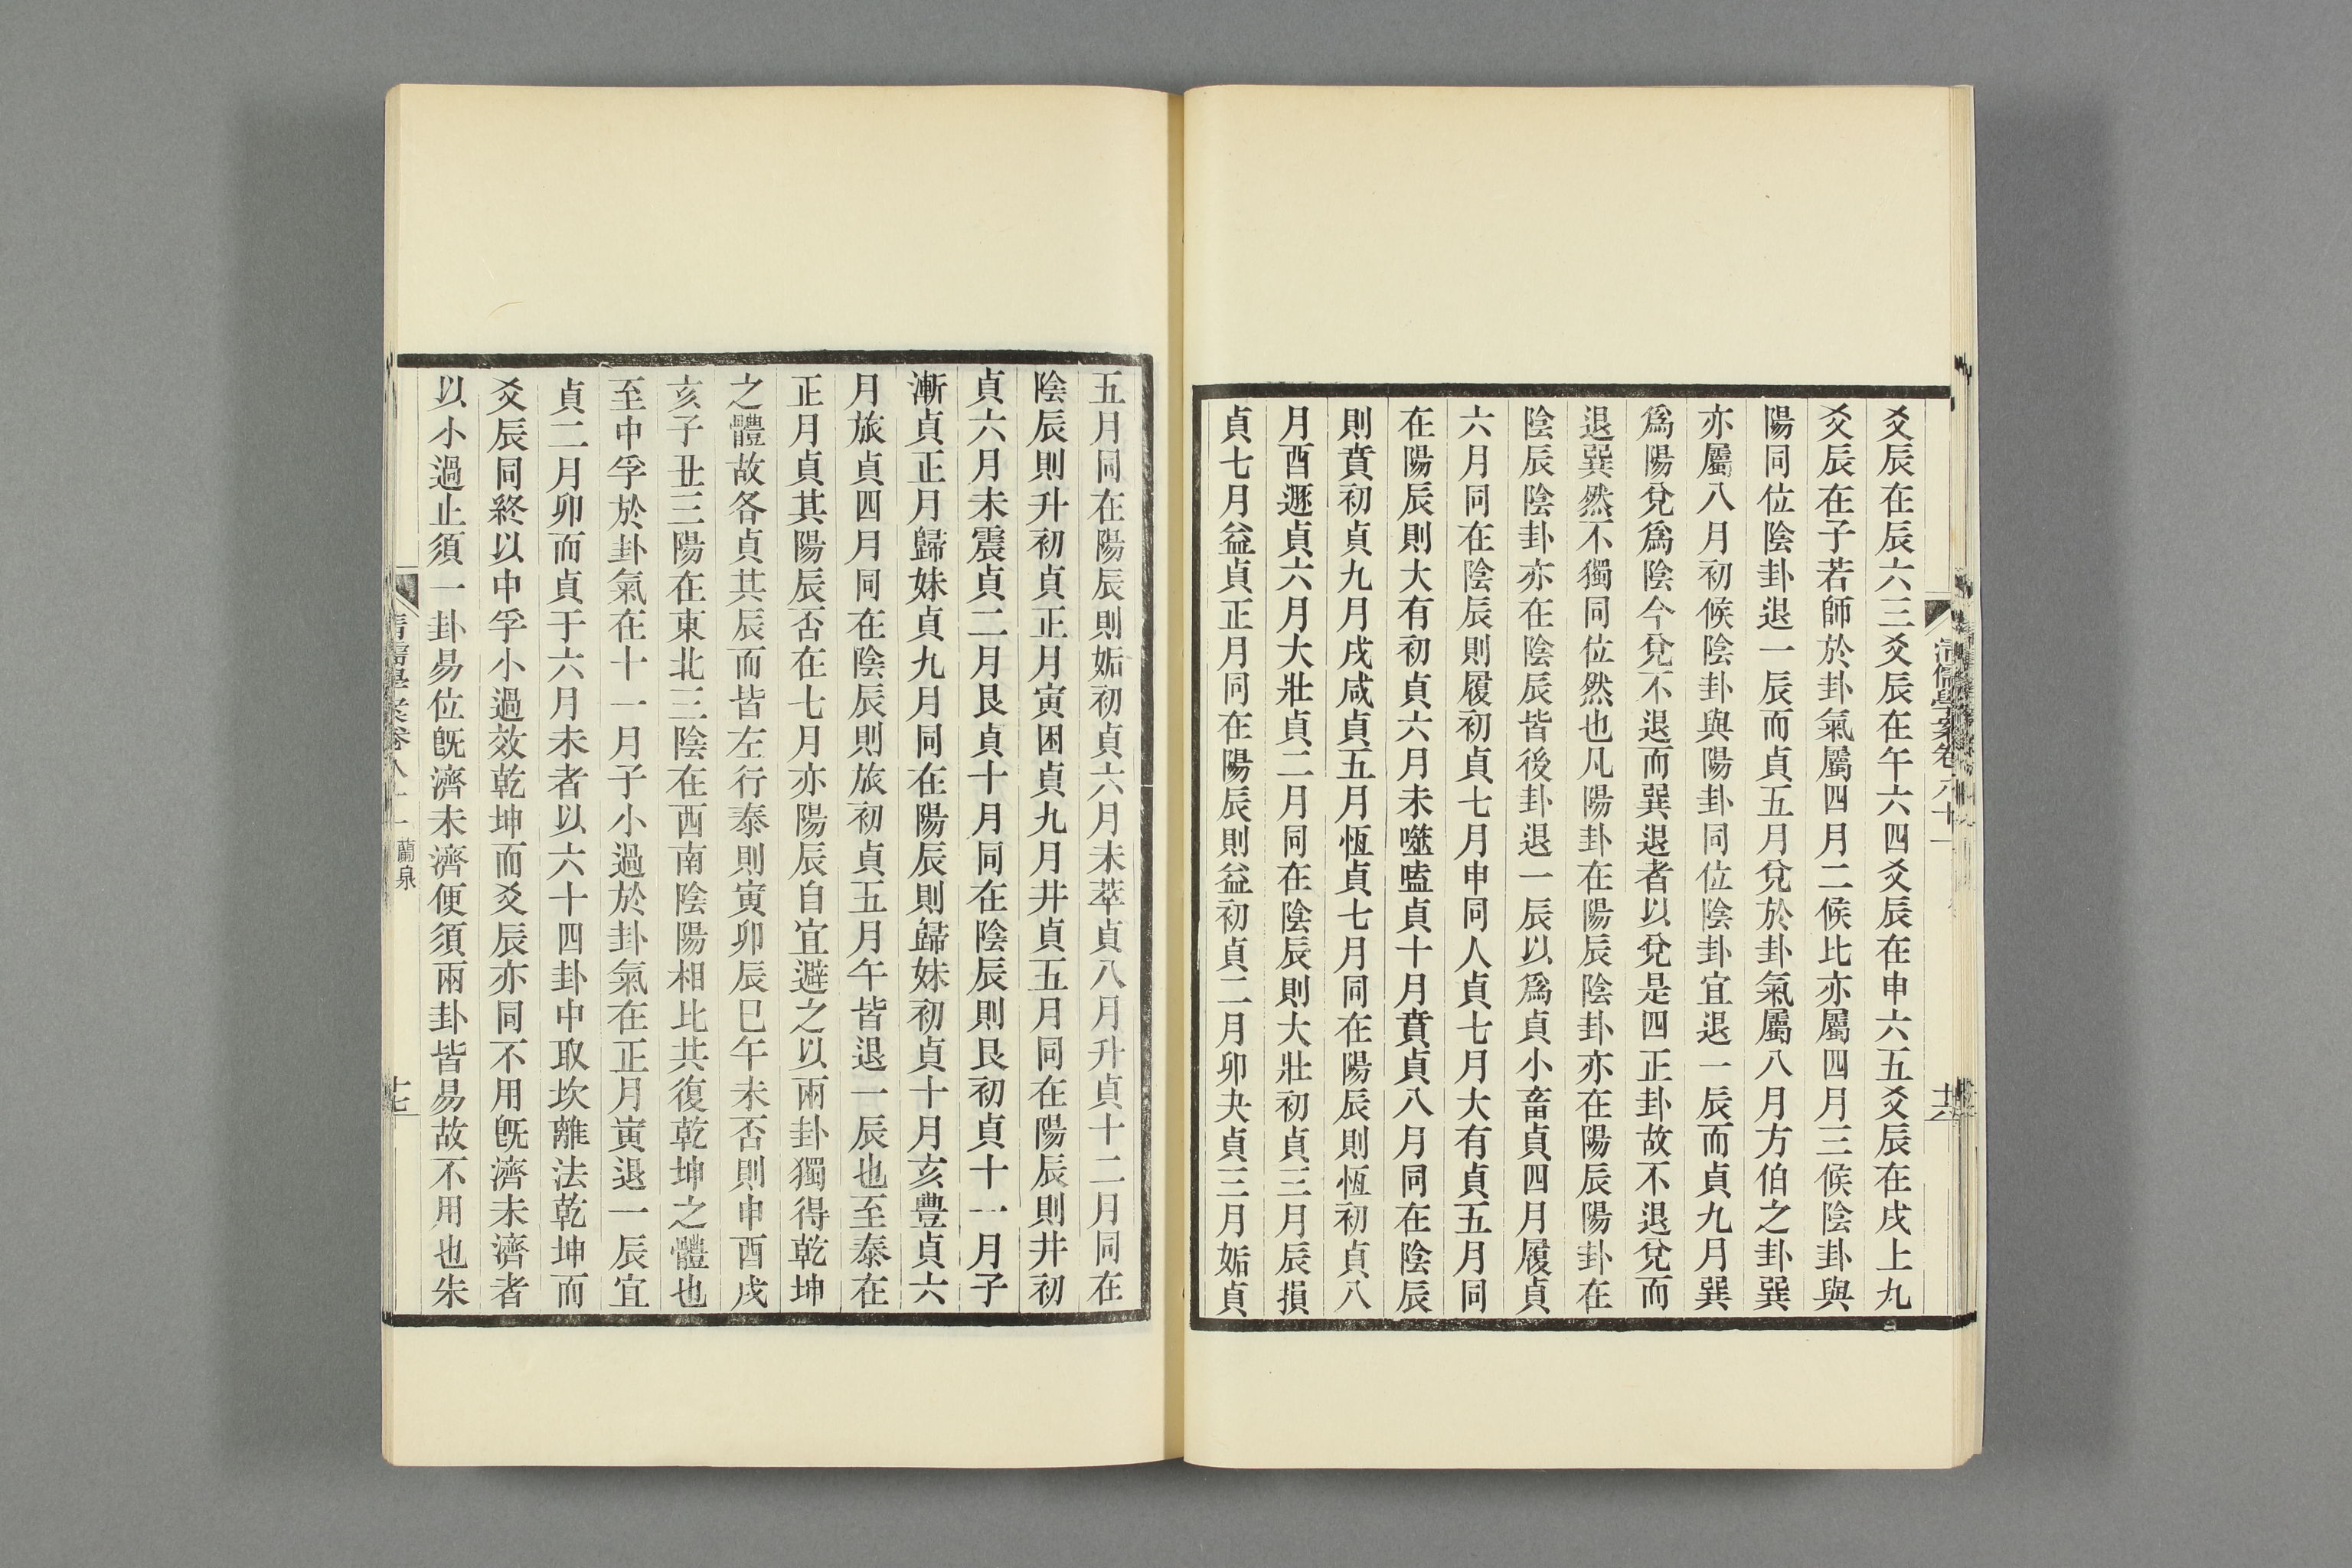 清儒學案卷八十一
廿六
爻辰在辰六三爻辰在午六四爻辰在申六五爻辰在戌上九
爻辰在子若師於卦氣屬四月二候比亦屬四月三候陰卦與
陽同位陰卦退一辰而貞五月兌於卦氣屬八月方伯之卦巽
亦屬八月初候陰卦與陽卦同位陰卦宜退一辰而貞九月巽
爲陽兌爲陰今兌不退而巽退者以兌是四正卦故不退兌而
退巽然不獨同位然也凡陽卦在陽辰陰卦亦在陽辰陽卦在
陰辰陰卦亦在陰辰皆後卦退一辰以爲貞小畜貞四月履貞
六月同在陰辰則履初貞七月申同人貞七月大有貞五月同
在陽辰則大有初貞六月未噬嗑貞十月賁貞八月同在陰辰
則賁初貞九月戌咸貞五月恆貞七月同在陽辰則恆初貞八
月酉遯貞六月大壯貞二月同在陰辰則大壯初貞三月辰損
貞七月益貞正月同在陽辰則益初貞二月卯夬貞三月姤貞
五月同在陽辰則姤初貞六月未萃貞八月升貞十二月同在
陰辰則升初貞正月寅困貞九月井貞五月同在陽辰則井初
貞六月未震貞二月艮貞十月同在陰辰則艮初貞十一月子
漸貞正月歸妹貞九月同在陽辰則歸妹初貞十月亥豐貞六
月旅貞四月同在陰辰則旅初貞五月午皆退一辰也至泰在
正月貞其陽辰否在七月亦陽辰自宜避之以兩卦獨得乾坤
之體故各貞其辰而皆左行泰則寅卯辰巳午未否則申酉戌
亥子丑三陽在東北三陰在西南陰陽相比共復乾坤之體也
至中孚於卦氣在十一月子小過於卦氣在正月寅退一辰宜
貞二月卯而貞于六月未者以六十四卦中取坎離法乾坤而
爻辰同終以中孚小過效乾坤而爻辰亦同不用旣濟未濟者
以小過止須一卦易位旣濟未濟便須兩卦皆易故不用也朱
清儒學案卷八十一 蘭泉
廿七